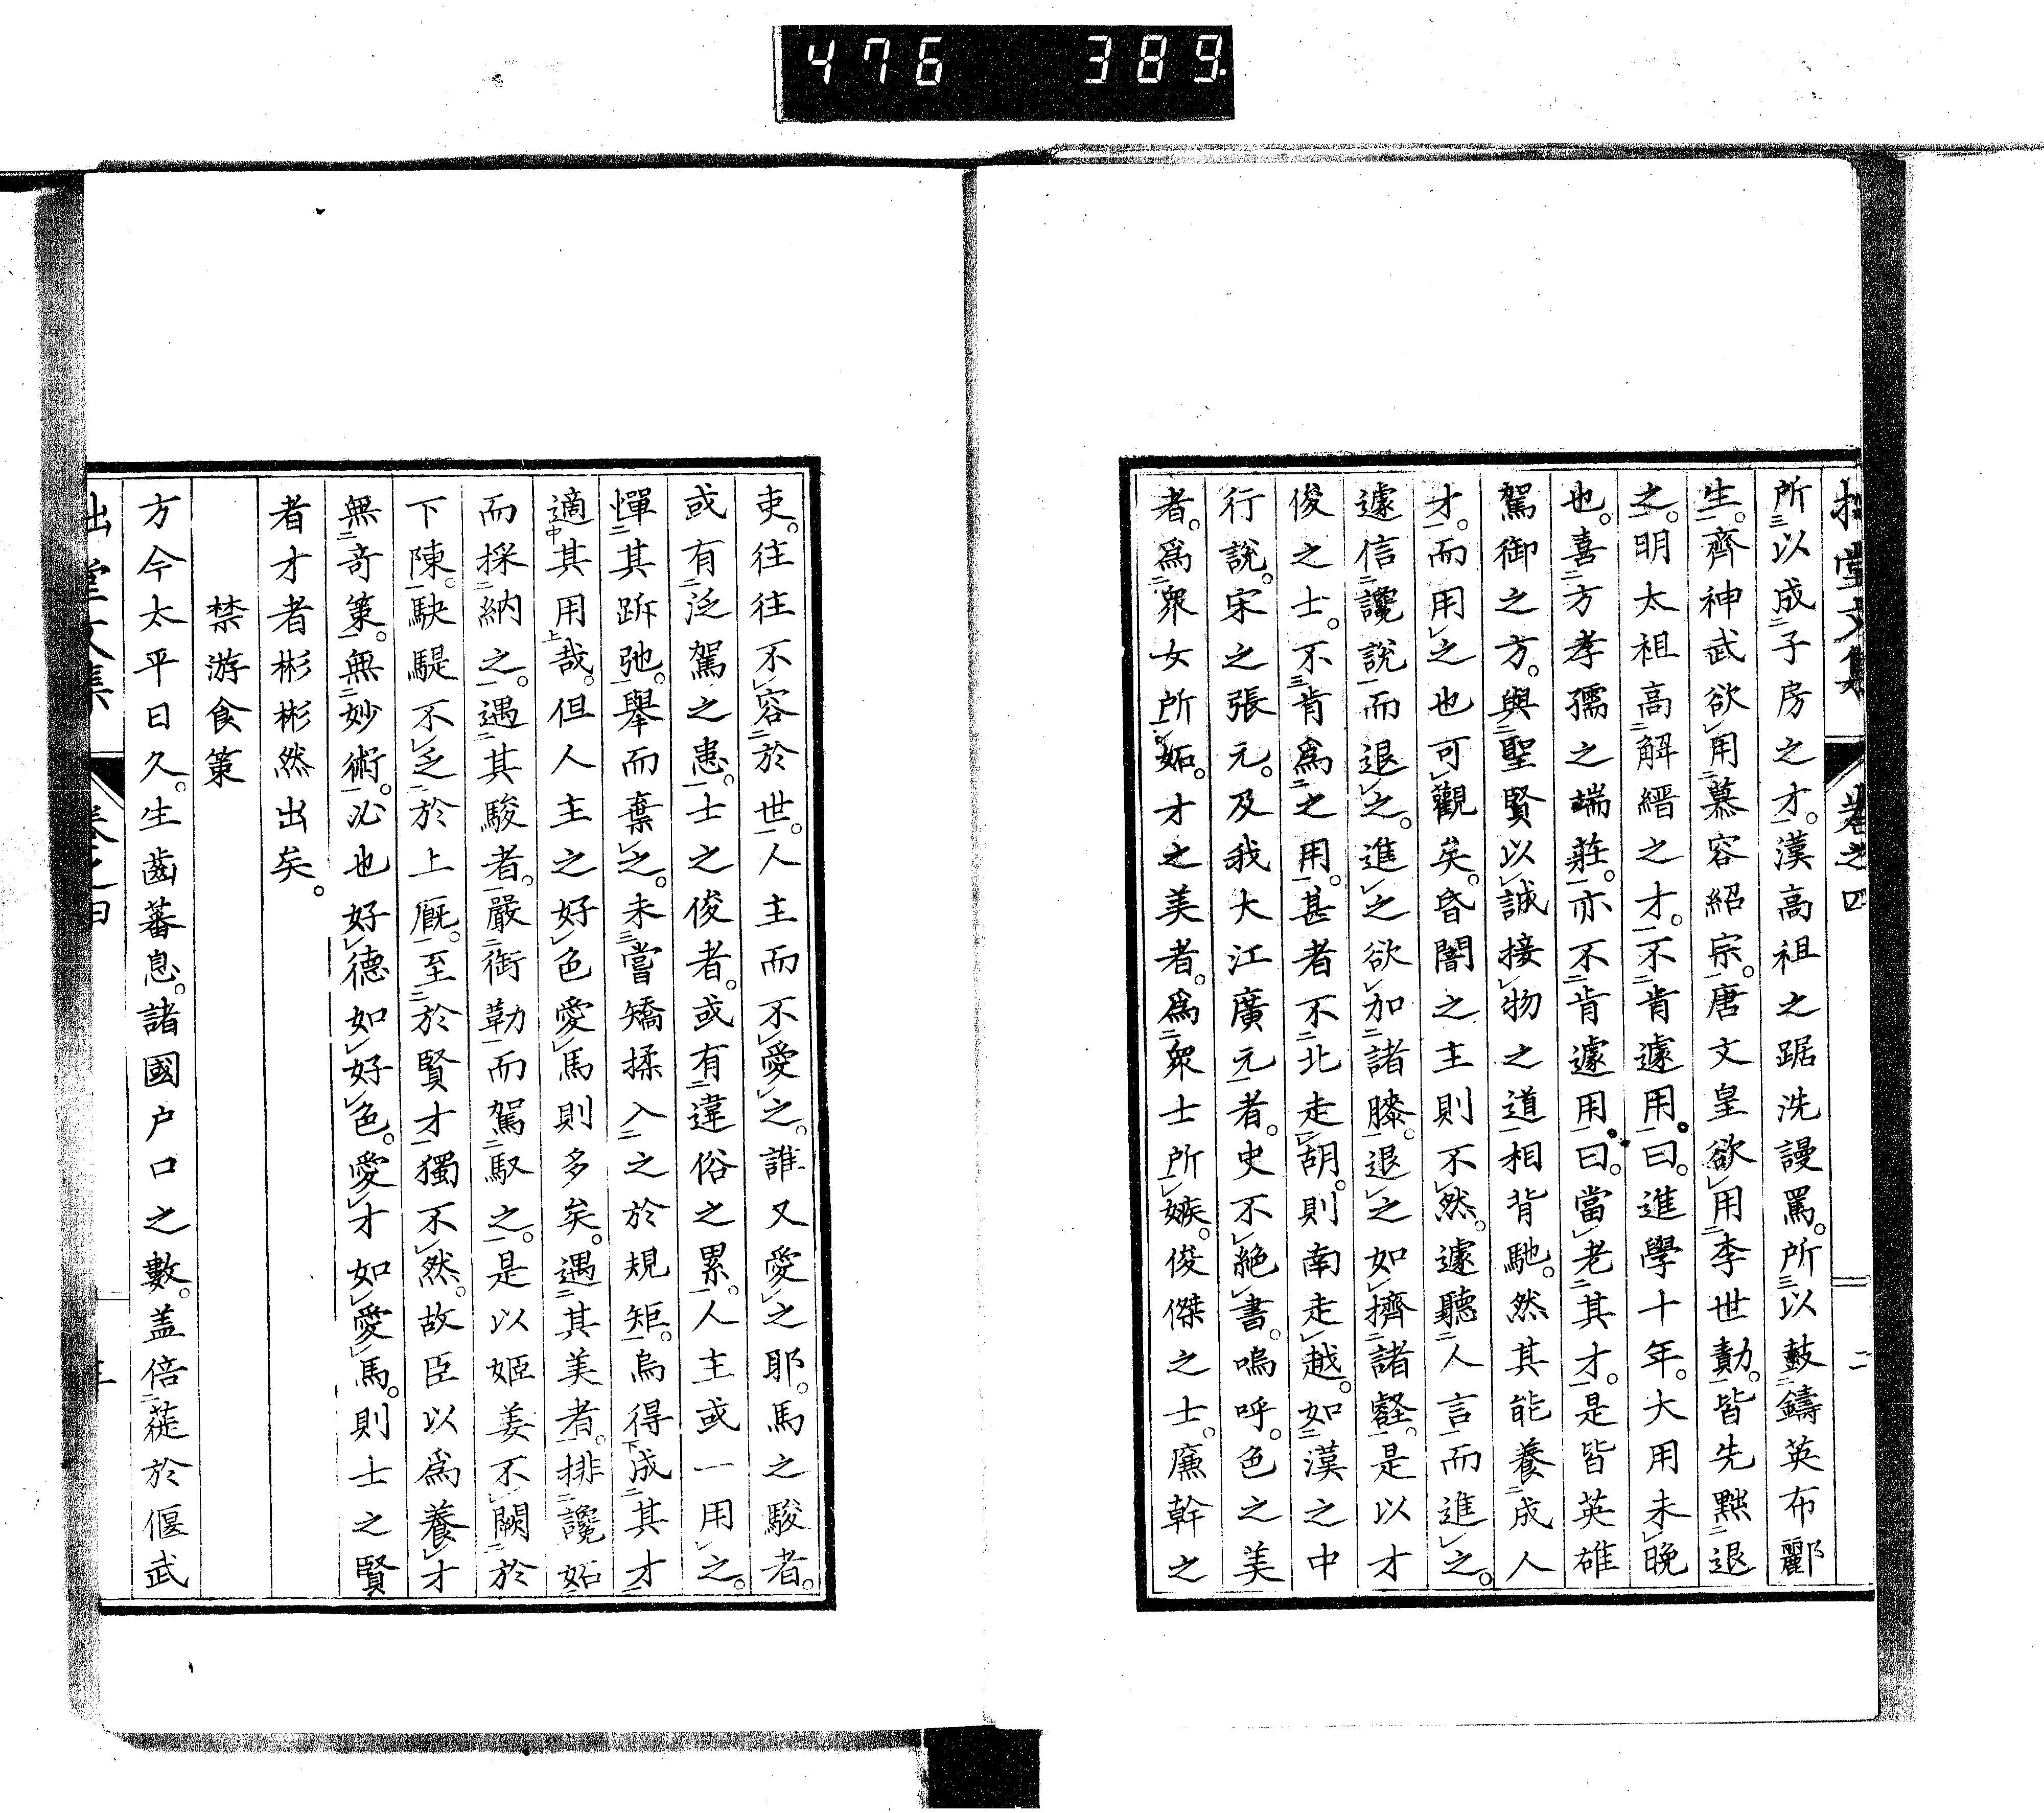 476 389
拙堂文集 卷之四 二
所以成子房之才。漢高祖之踞洗謾罵。所以鼓鑄英布酈
生。齊神武欲用慕容紹宗。唐文皇欲用李世勣。皆先黜退
之。明太祖高解縉之才。不肯遽用。曰。進學十年。大用未晚
也。喜方孝孺之端莊。亦不肯遽用。曰。當老其才。是皆英雄
駕御之方。與聖賢以誠接物之道相背馳。然其能養成人
才。而用之也可觀矣。昏闇之主則不然。遽聽人言而進之。
遽信讒說而退之。進之欲加諸膝。退之如擠諸壑。是以才
俊之士。不肯爲之用。甚者不北走胡。則南走越。如漢之中
行說。宋之張元。及我大江廣元者。史不絕書。嗚呼。色之美
者。爲衆女所妬。才之美者。爲衆士所嫉。俊傑之士。廉幹之
吏。往往不容於世。人主而不愛之。誰又愛之耶。馬之駿者。
或有泛駕之患。士之俊者。或有違俗之累。人主或一用之。
憚其跅弛。舉而棄之。未嘗矯揉入之於規矩。烏得成其才
適其用哉。但人主之好色愛馬則多矣。遇其美者。排讒妬
而採納之。遇其駿者。嚴銜勒而駕馭之。是以姬姜不闕於
下陳。駃騠不乏於上廐。至於賢才獨不然。故臣以爲養才
無奇策。無妙術。必也好德如好色。愛才如愛馬。則士之賢
者才者彬彬然出矣。
禁游食策
方今太平日久。生齒蕃息。諸國戶口之數。蓋倍蓰於偃武
拙堂文集 卷之四